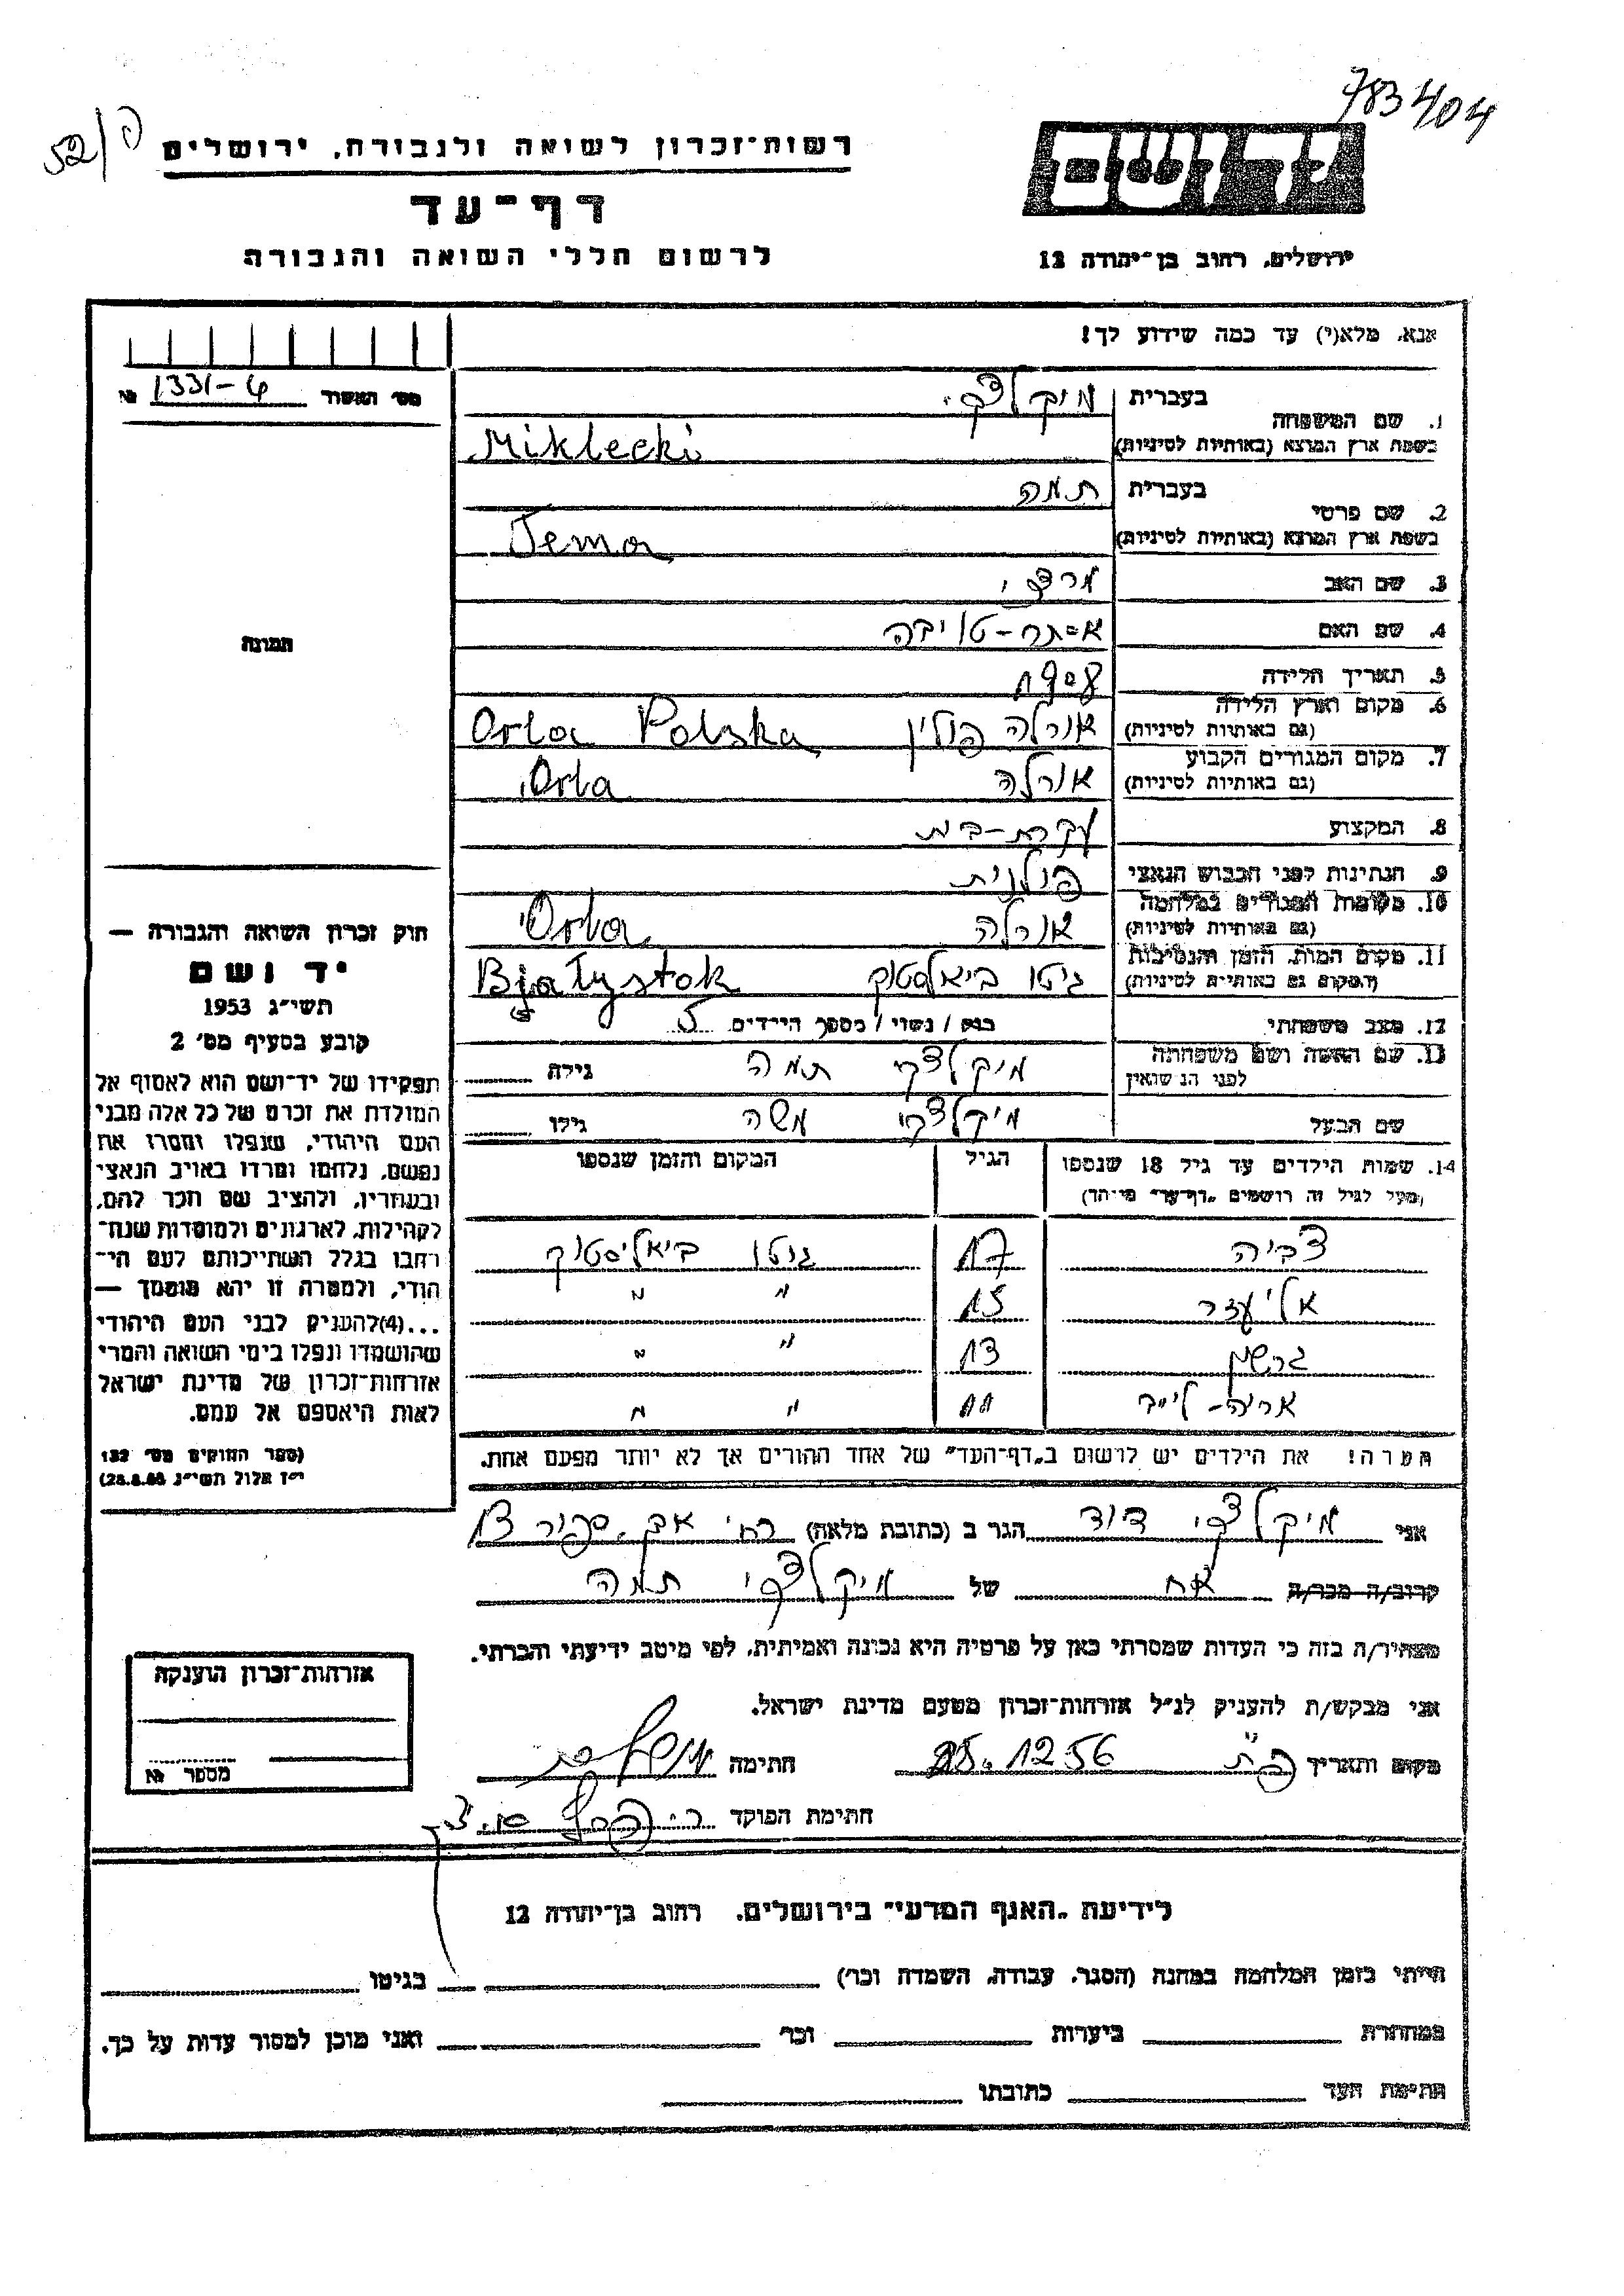 783/404
52/פ
רשות־זכרון לשואה ולגבורה, ירושלים
יד ושם
דף־עד
לרשום חללי השואה והגבורה
ירושלים, רחוב בן־יהודה 12
אנא, מלא(י) עד כמה שידוע לך!
מס' האשור 1331-4 №
1. שם המשפחה בעברית מיקלצקי
בשפת ארץ המוצא (באותיות לטיניות) Miklecki
2. שם פרטי בעברית תמה
בשפת ארץ המוצא (באותיות לטיניות) Tema
3. שם האב מרדכי
4. שם האם אסתר-טויבה
5. תאריך הלידה 1908
6. מקום וארץ הלידה (גם באותיות לטיניות) אורלה פולין Orla Polska
7. מקום המגורים הקבוע (גם באותיות לטיניות) אורלה Orla
8. המקצוע עקרת-בית
9. הנתינות לפני הכבוש הנאצי פולנית
10. מקומות המגורים במלחמה (גם באותיות לטיניות) אורלה Orla
11. מקום המות, הזמן והנסיבות (המקום גם באותיות לטיניות) גיטו ביאלסטוק Białystok
12. מצב משפחתי רווק / נשוי / מספר הילדים 5
13. שם האשה ושם משפחתה לפני הנשואין מיקלצקי תמה גילה
שם הבעל מיקלצקי משה גילו
תמונה
14. שמות הילדים עד גיל 18 שנספו הגיל המקום והזמן שנספו
(מעל לגיל זה רושמים „דף־עד״ מיוחד)
צביה 17 גיטו ביאליסטוק
אליעזר 15 " "
גרשון 13 " "
אריה-לייב 11 " "
הערה! את הילדים יש לרשום ב„דף־העד״ של אחד ההורים אך לא יותר מפעם אחת.
חוק זכרון השואה והגבורה —
יד ושם
תשי״ג 1953
קובע בסעיף מס' 2
תפקידו של יד־ושם הוא לאסוף אל
המולדת את זכרם של כל אלה מבני
העם היהודי, שנפלו ומסרו את
נפשם, נלחמו ומרדו באויב הנאצי
ובעוזריו, ולהציב שם וזכר להם,
לקהילות, לארגונים ולמוסדות שנח־
רבו בגלל השתייכותם לעם הי־
הודי, ולמטרה זו יהא מוסמך —
...(4) להעניק לבני העם היהודי
שהושמדו ונפלו בימי השואה והמרי
אזרחות־זכרון של מדינת ישראל
לאות היאספם אל עמם.
(ספר החוקים מס' 132
י״ז אלול תשי״ג
אני מיקלצקי דוד הגר ב (כתובת מלאה) רח' 13
קרוב/ה מכר/ה אח של מיקלצקי תמה
מצהיר/ה בזה כי העדות שמסרתי כאן על פרטיה היא נכונה ואמיתית, לפי מיטב ידיעתי והכרתי.
אני מבקש/ת להעניק לנ״ל אזרחות־זכרון מטעם מדינת ישראל.
מקום ותאריך פ"ת 25.12.56 חתימה
חתימת הפוקד
אזרחות־זכרון הוענקה
מספר №
לידיעת „האגף המדעי״ בירושלים, רחוב בן־יהודה 12
הייתי בזמן המלחמה במחנה (הסגר, עבודה, השמדה וכו') בגיטו
במחתרת ביערות וכו' ואני מוכן למסור עדות על כך.
חתימת העד כתובתו